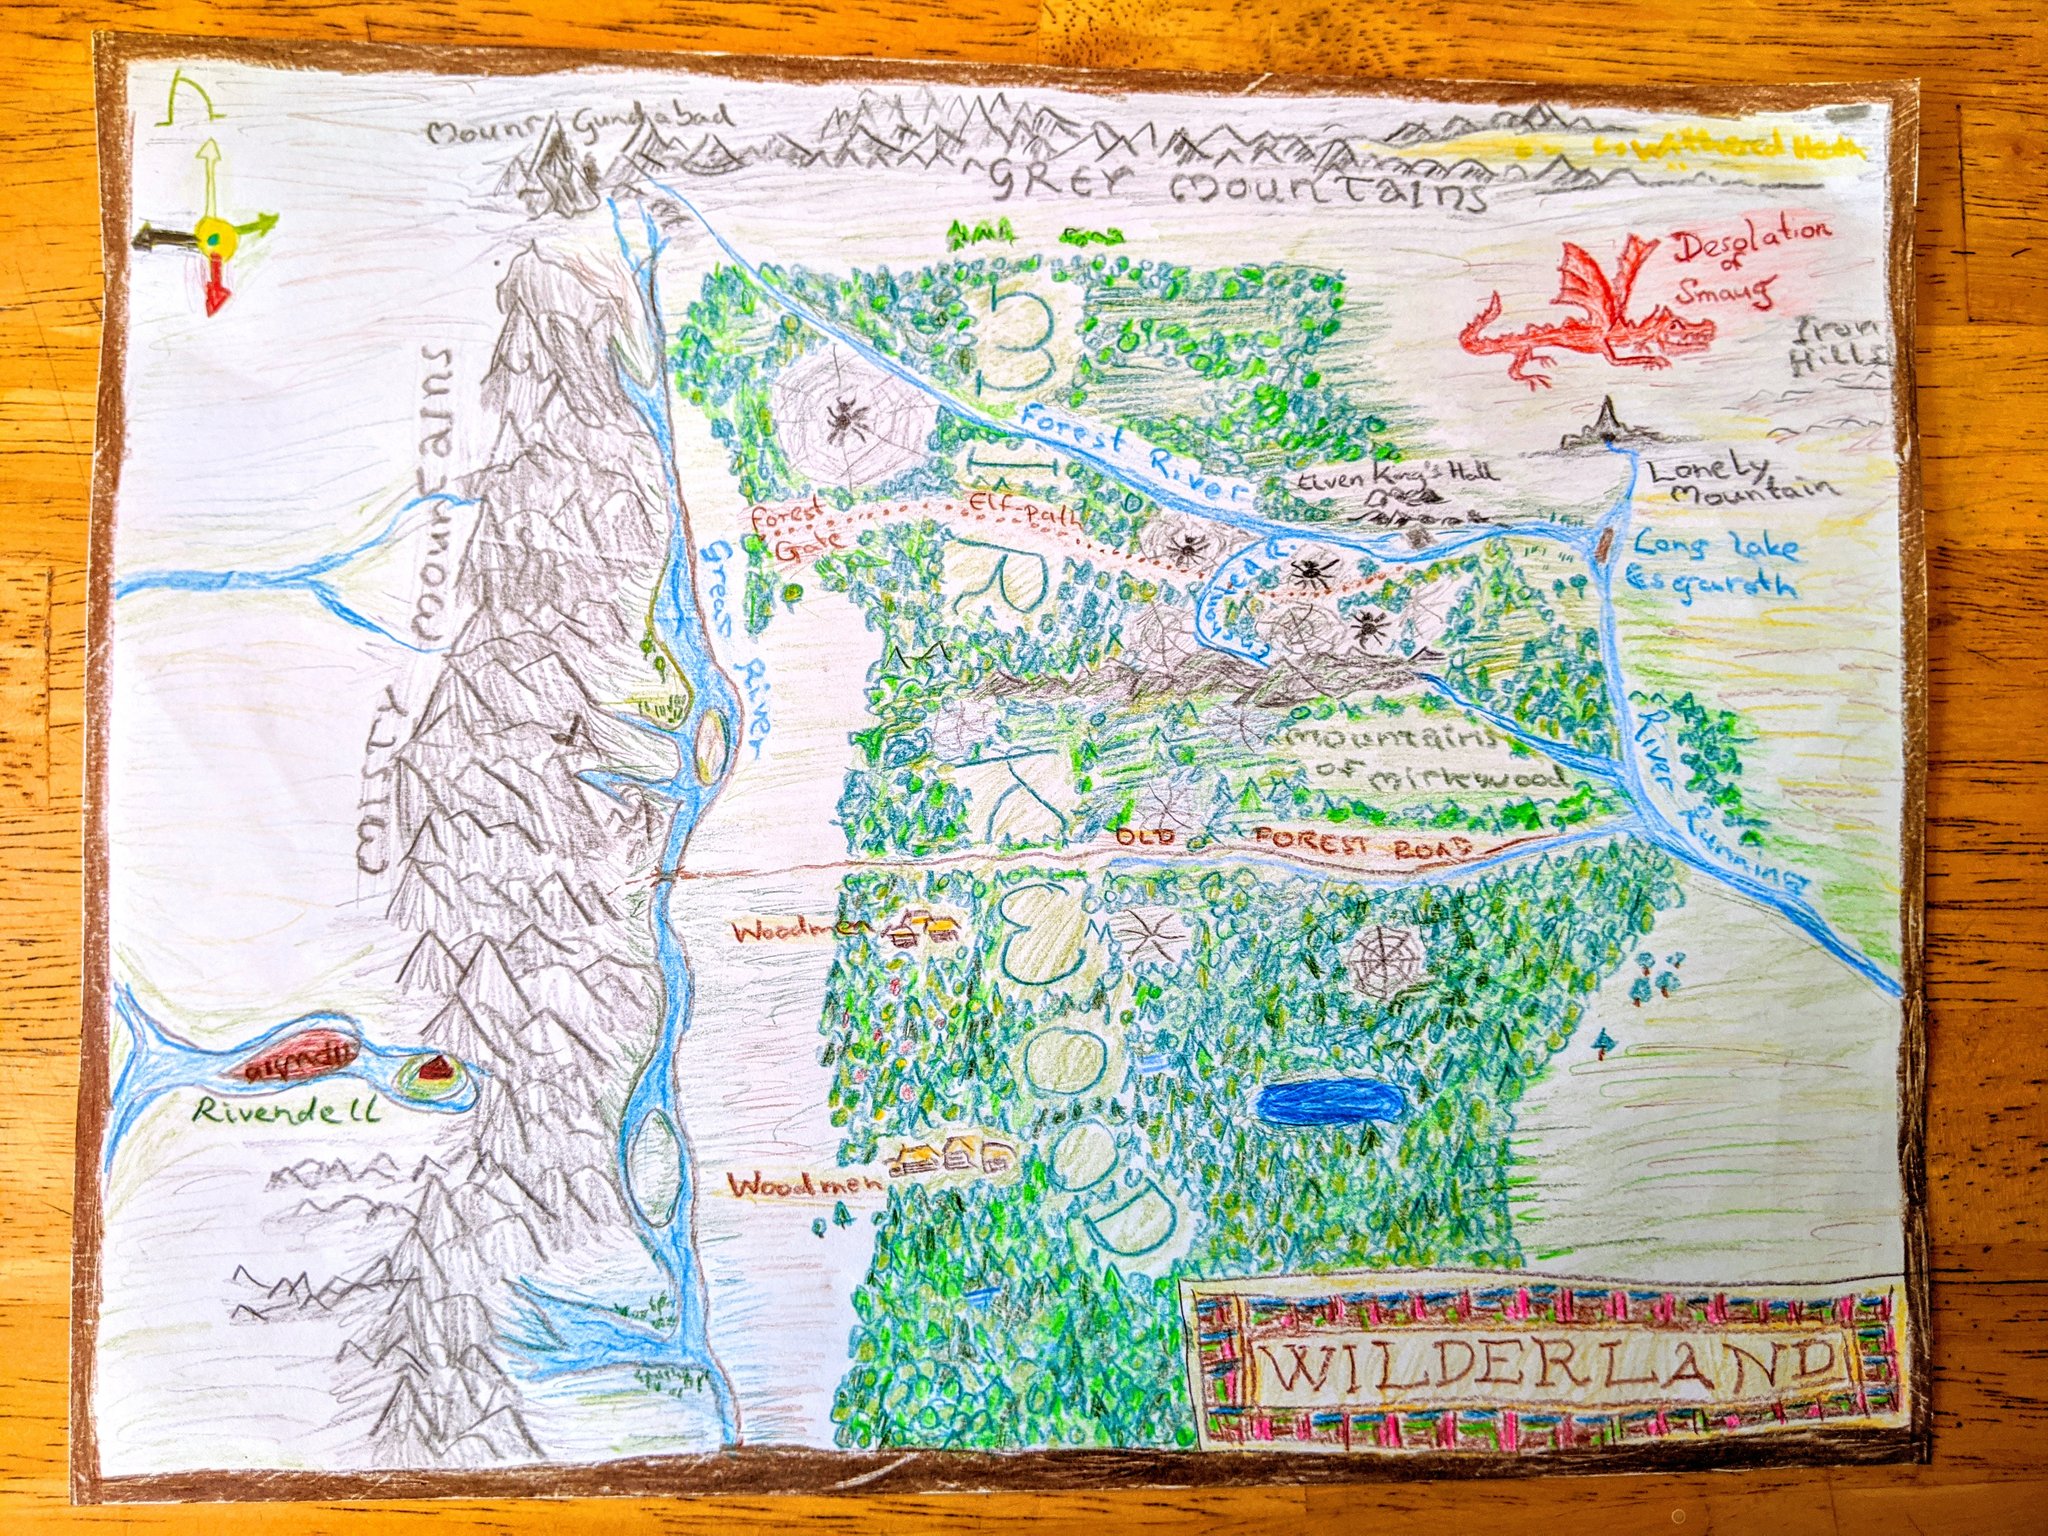 Mount Gundabad
GREY MOUNTAINS
Withered Heath
Desolation
of
Smaug
Iron
Hills
Lonely
Mountain
Long Lake
Esgaroth
Forest River
Elven King's Hall
Forest
Gate
Elf-path
Enchanted R.
MISTY MOUNTAINS
Great River
MIRKWOOD
Mountains
of Mirkwood
River Running
OLD FOREST ROAD
Woodmen
Rivendell
Woodmen
WILDERLAND